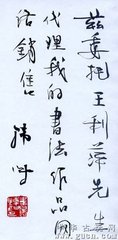 兹委托王利萍先生
代理我的书法作品网
络销售